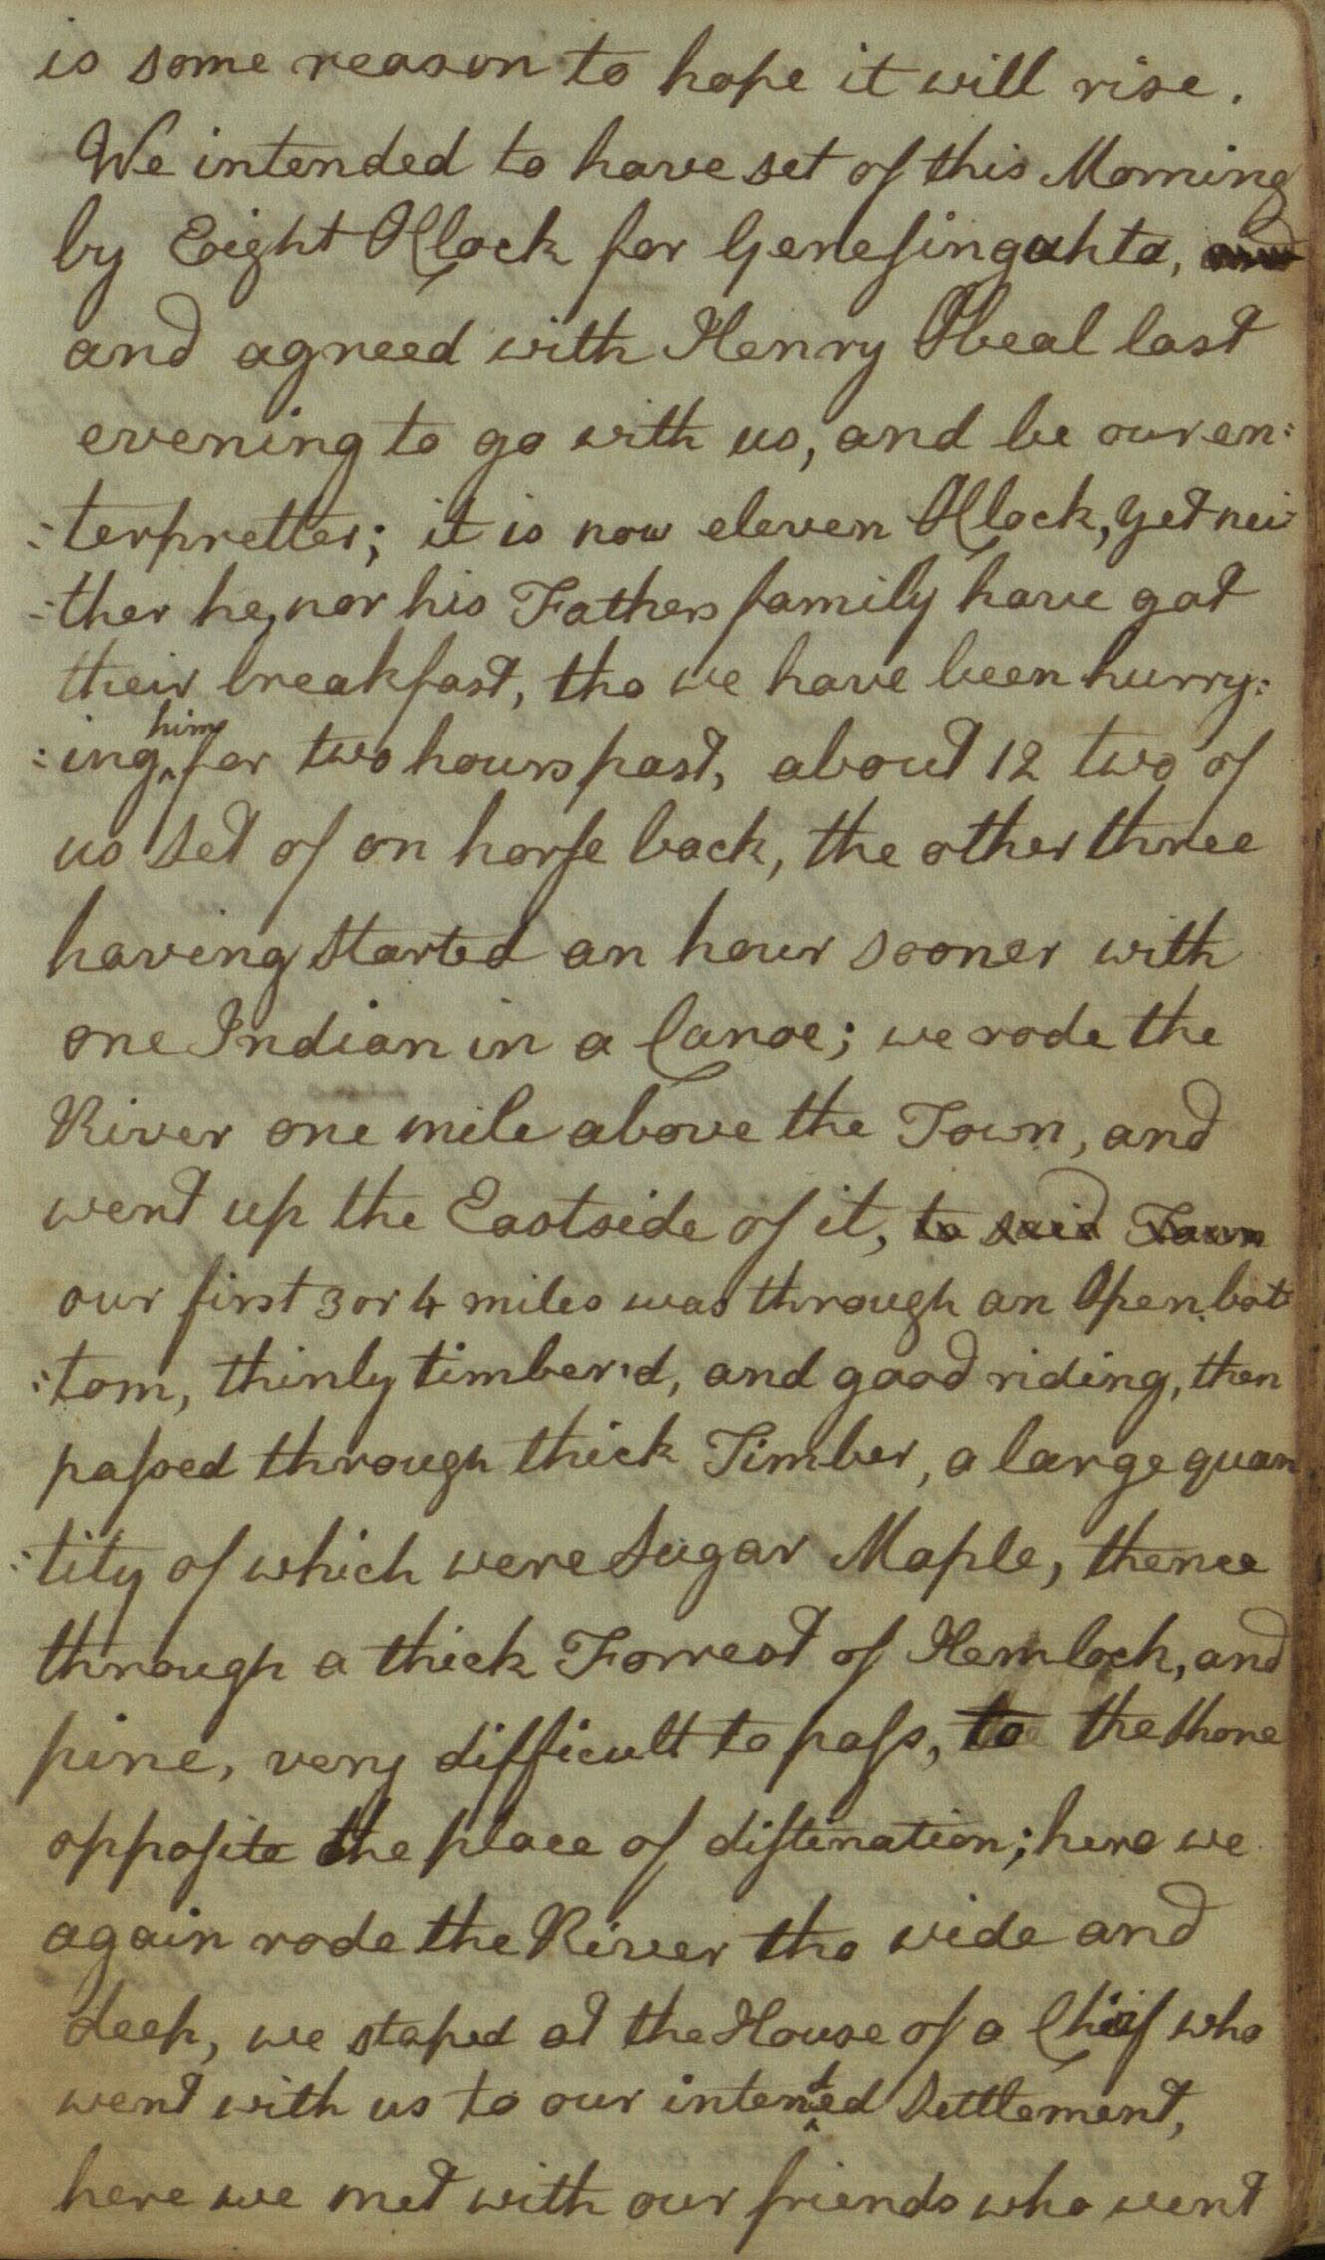 is some reason to hope it will rise.
We intended to have set of this Morning
by Eight OClock for Genesinguhta, and
and agreed with Henry Obeal last
evening to go with us, and be our en:
:terpretter; it is now eleven OClock, yet nei
:ther he, nor his Fathers family have got
their breakfast, tho we have been hurry:
:ing him for two hours past, about 12 two of
us set of on horse back, the other three
having started an hour sooner with
one Indian in a Canoe; we rode the
River one mile above the Town, and
went up the Eastside of it, to said Town
our first 3 or 4 miles was through an Open bot:
:tom, thinly timber'd, and good riding, then
passed through thick Timber, a large quan
:tity of which were Sugar Maple, thence
through a thick Forrest of Hemlock, and
pine, very difficult to pass, to the shore
opposite the place of distination; here we
again rode the River tho wide and
deep, we stoped at the House of a Chief who
went with us to our intended Settlement,
here we met with our friends who went